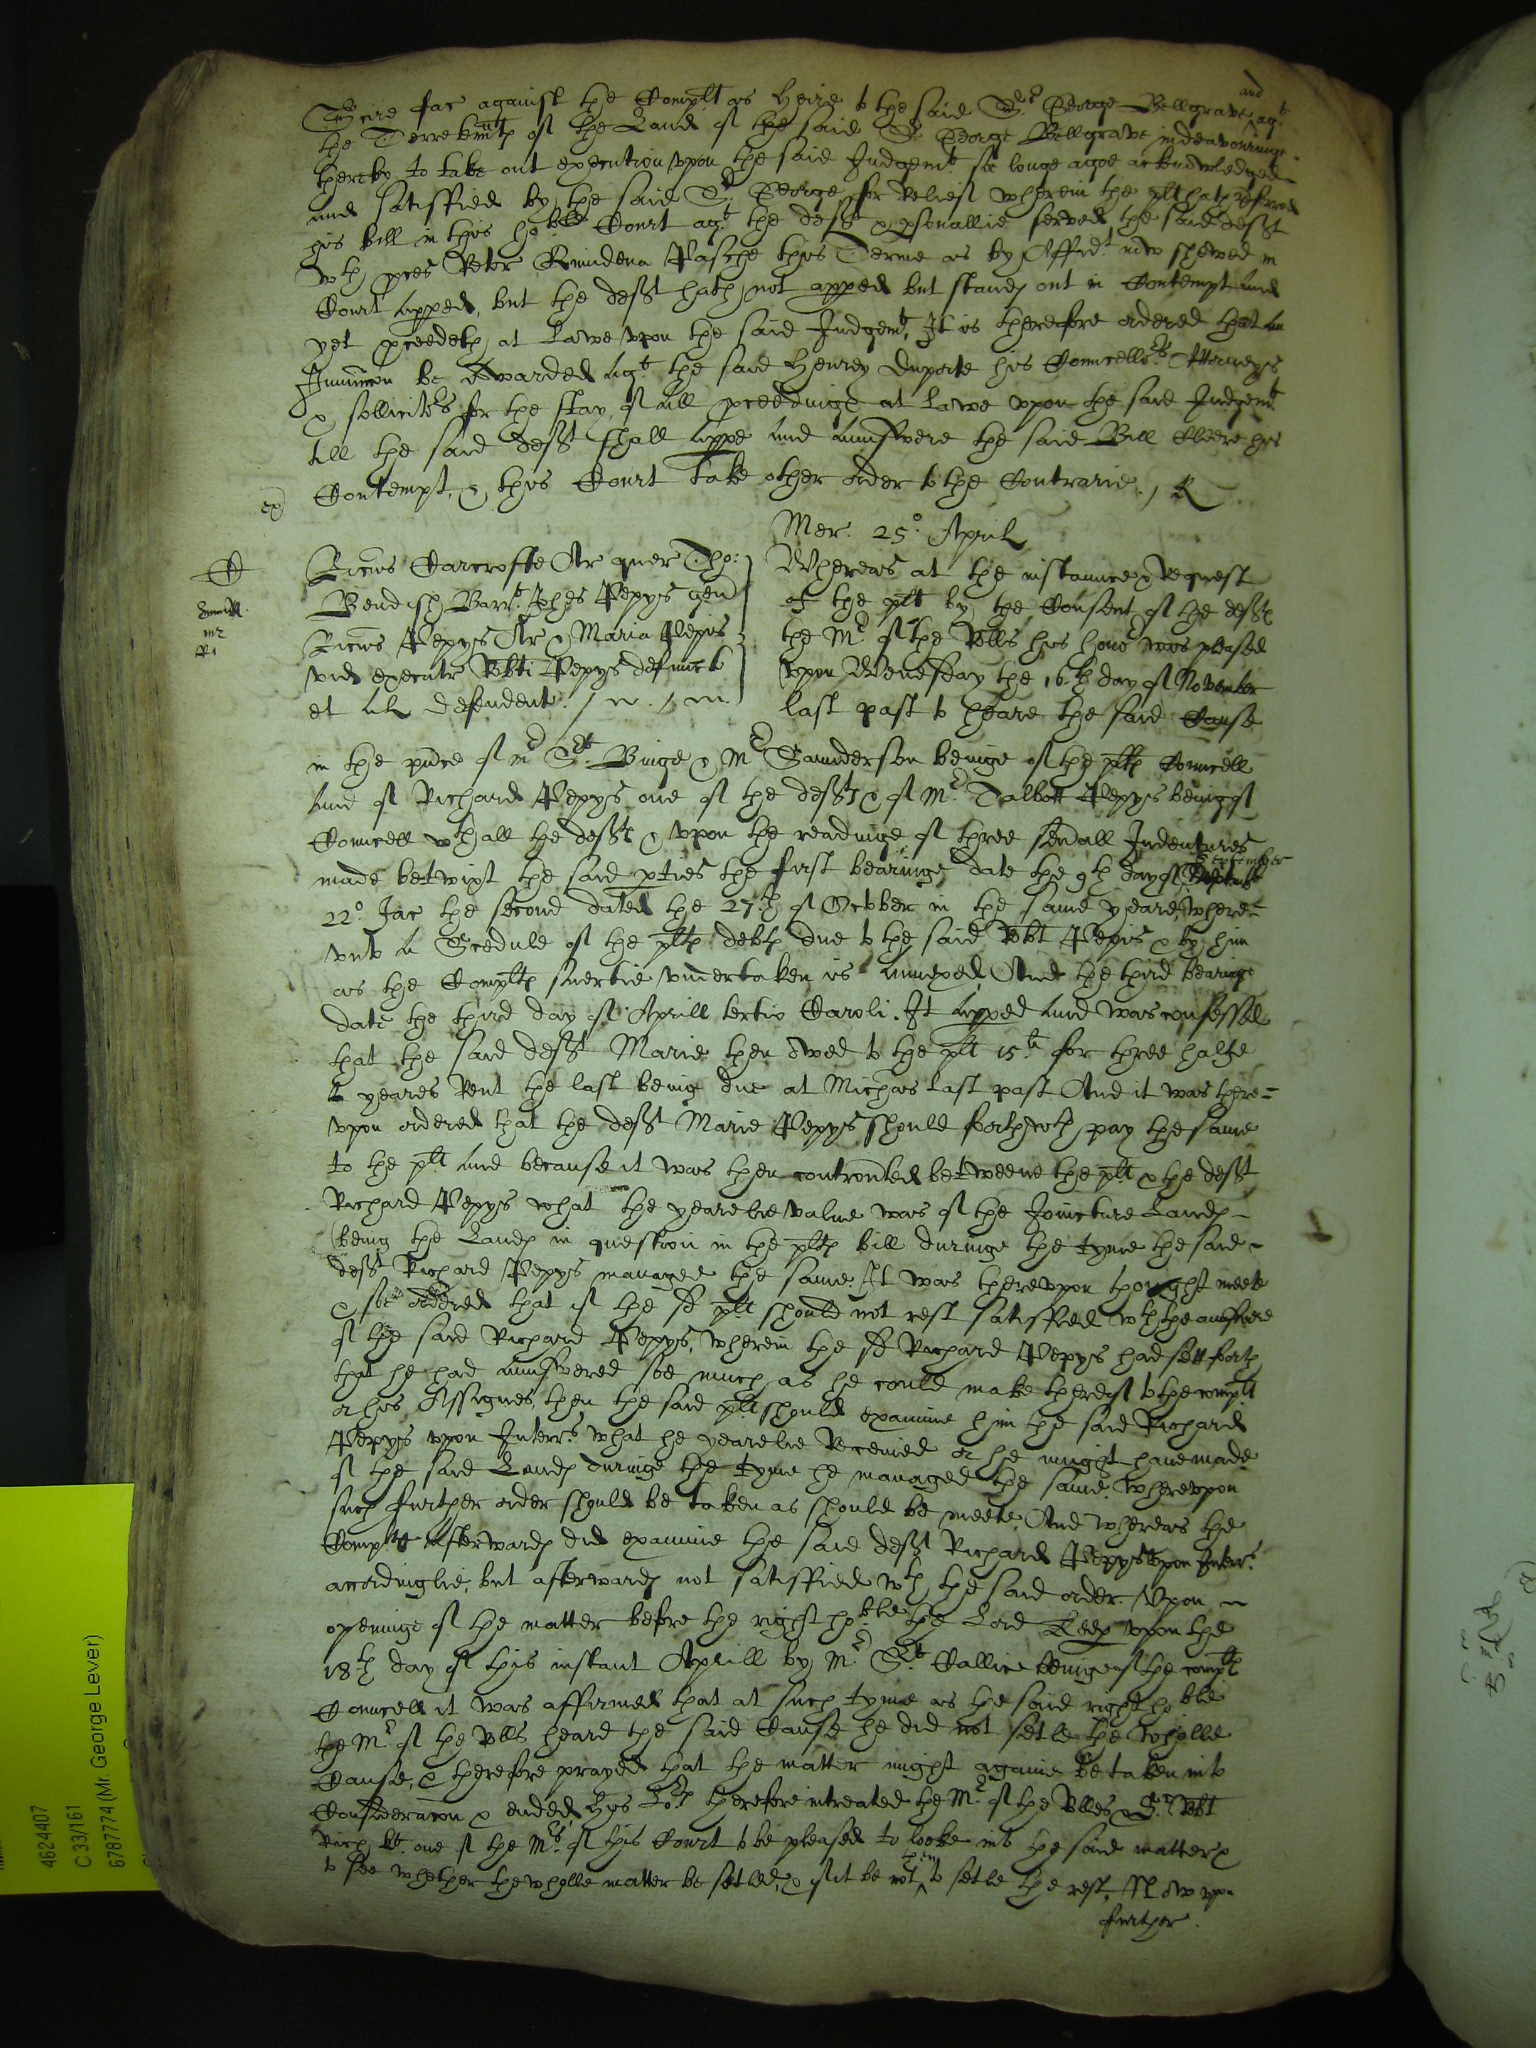 Scire fac against the Complt as heire to the said Sr George Bellgrave and agt
the Terretennts of the Lands of the said Sr George Bellgrave indeavouringe
thereby to take out execution upon the said Judgemt soe longe agoe acknowledged
and satisfied by the said Sr George, for Reliefe wherein the plt hath preferred
his bill in this hoble Court agt the deft & psonallie served the said deft
wth pces Retor Quindena Pasche this Terme as by Affidt now shewed in
Court apped, but the deft hath not apped but stands out in Contempt and
yet pceedeth at Lawe upon the said Judgemt, It is therefore ordered that an
Iniuncon be awarded agt the said Henrey Duporte his Councellrs Attorneys
& sollicitrs for the stay of all pceedings at Lawe upon the said Judgemt
till the said deft shall appe and answere the said Bill Cleere his
Contempt, & this Court take other order to the Contrarie. / R
ex
Mer. 25o Aprill
Ricus Carcrofte Ar quer Tho:
Bendish Barrt Johes Pepys gen
Ricus Pepys Ar & Maria Pepis
vid executr Robti Pepys defunct
et al defendent.
Whereas at the instaunce & request
of the plt by the Consent of the defts
the Mr of the Rolls his honor was pleased
upon Wenesday the 16th day of November
last past to heare the said Cause
in the pnce of mr St Binge & Mr Saunderson beinge of the plts Councell
and of Richard Pepys one of the defts & of Mr Talbott Pepys beinge of
Councell wth all the defts & upon the readinge of three sevall Indentures
made betwixt the said pties the first bearinge date the 9th day of September
22o Jac the second dated the 27th of October in the same yeare, where=
unto a Scedule of the plts debts due to the said Robt Pepis & by him
as the Complts suertie undertaken is annexed, And the third bearinge
date the third day of Aprill tertio Caroli. It apped and was confessed
that the said deft Marie then owed to the plt 15li for three halfe
yeares Rent the last being due at Michas last past And it was there=
upon ordered that the deft Marie Pepys should forthwth pay the same
to the plt and because it was then controvted betweene the plt & the deft
Richard Pepys what the yearelie value was of the Joincture Lands
(being the Lands in question in the plts bill duringe the tyme the said
deft Richard Pepys managed the same, It was thereupon thought meete
& soe ordered that if the sd plt should not rest satisfied wth the answere
of the said Richard Pepys, wherein the sd Richard Pepys had sett forth
that he had answered soe much as he could make thereof to the complt
or his Assignes, then the said plt should examine him the said Richard
Pepys upon Interrs what he yearelie Receuied or he might have made
of the said Lands duringe the tyme he managed the same. Whereupon
such further order should be taken as should be meete, And whereas the
Complt afterwards did examine the said deft Richard Pepys upon Interrs
accordinglie, but afterwards not satisfied wth the said order. Upon
openinge of the matter before the right hoble the Lord Keep upon the
18th day of this instant Aprill by Mr St Callice beinge of the complts
Councell it was affirmed that at such tyme as the said right hoble
the Mr of the Rolls heard the said Cause he did not setle the wholle
Cause, & therefore prayed that the matter might againe be taken into
Consideracon & ended, his Lopp therefore intreated the Mr of the Rolles & Sr Robt
Rich kt one of the Mrs of this Court to be pleased to looke into the said matter &
to see whether the wholle matter be setled, & if it be not then to setle the rest. Now upon
further.
4624407
C 33/161
6787774 (Mr. George Lever)